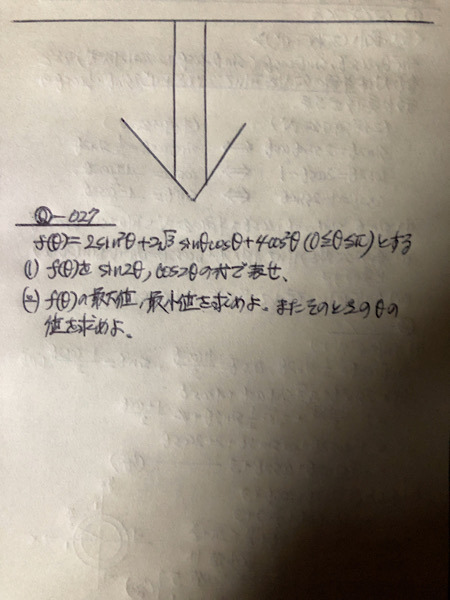 Q-027
f(θ)=2sin²θ+2√3 sinθcosθ+4cos²θ (0≦θ≦π)とする
(1) f(θ)をsin2θ, cos2θの式で表せ、
(2) f(θ)の最大値,最小値を求めよ。またそのときのθの
値を求めよ。